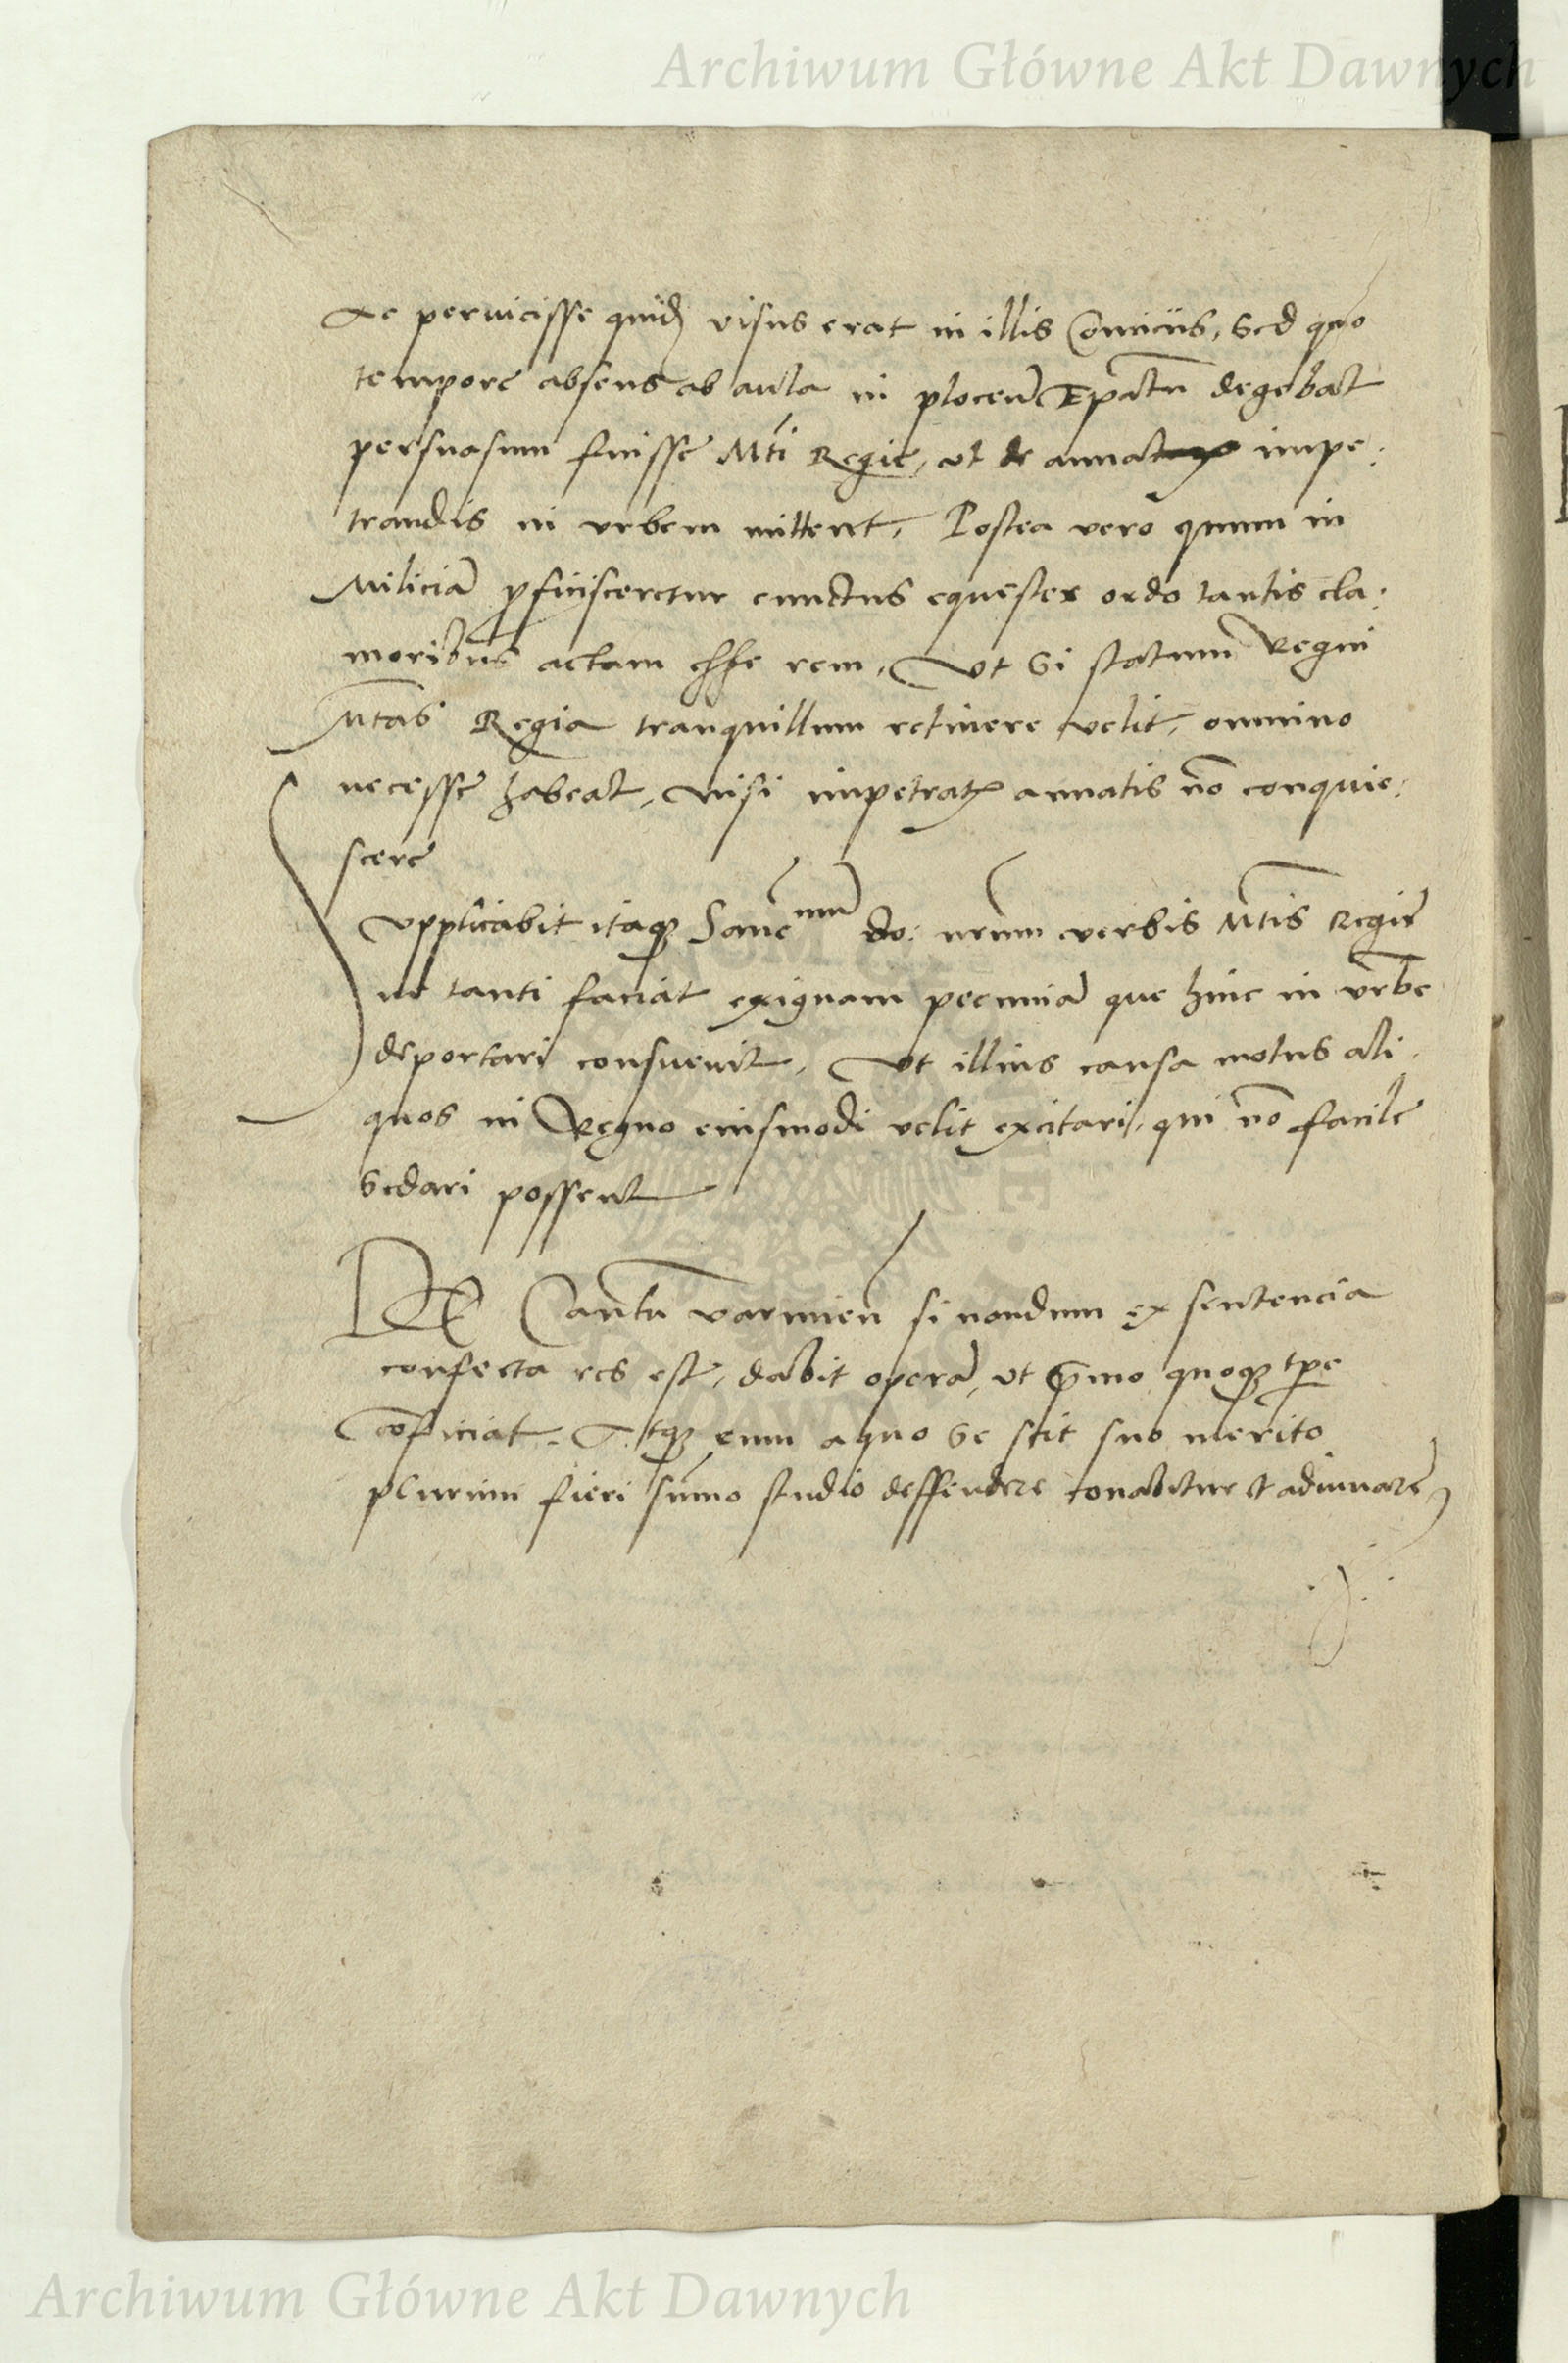 Archiwum Główne Akt Dawnych
Ac pervicisse quidẽ visus erat in illis Comiciis, Sed quo
tempore absens ab aula in plocen̄ Epatũ degebat
persuasum fuisse Mti Regie, ut de annatis impe:
trandis in urbem mittent, Postea vero quum in
Miliciã ꝓficisceretur cunctus equester ordo tantis cla:
moribus actam esse rem, Ut Si statum Regni
Mtas Regia tranquillum retinere velit, omnino
necesse habeat, nisi impetratꝭ annatis nõ conquie:
scere
Supplicabit itaqꝫ Sanc^mum do: nrum verbis Mtis Regie
ne tanti faciat exiguam pecuniã que hinc in urbẽ
deportari consuevit, Ut illius causa motus ali
quos in Regno eiusmodi velit excitari, qui nõ facile
Sedari possent
DE Cantũ varmien̄ si nondum ex sententia
confecta res est, dabit operã, ut p̃mo quoqꝫ tp̃e
cõficiat. Atqꝫ eum a quo Se scit suo merito
plurimi fieri sũmo studio deffendere conabitur et adiuvare
Archiwum Główne Akt Dawnych